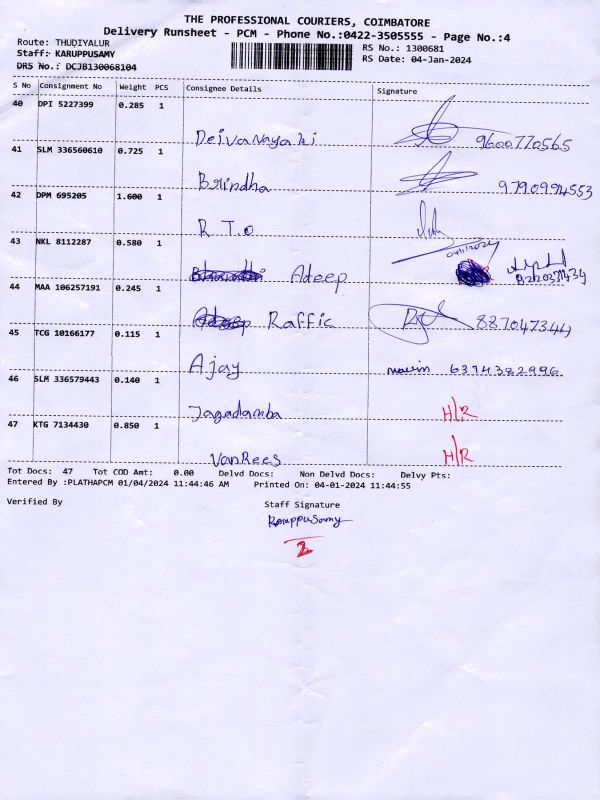 THE PROFESSIONAL COURIERS, COIMBATORE
Delivery Runsheet - PCM - Phone No.:0422-3505555 - Page No.:4
Route: THUDIYALUR
RS No.: 1300681
Staff: KARUPPUSAMY
RS Date: 04-Jan-2024
DRS No.: DCJB130068104
S No Consignment No Weight PCS Consignee Details Signature
40 DPI 5227399 0.285 1
Deivanayaki 9600770565
41 SLM 336560610 0.725 1
Brindha
42 DPM 695205 1.600 1
R T.o
43 NKL 8112287 0.580 1
Adeep
44 MAA 106257191 0.245 1
Raffic 887047344
45 TCG 10166177 0.115 1
Ajay 6374382996
46 SLM 336579443 0.140 1
Jagadamba H/R
47 KTG 7134430 0.850 1
VanRees H/R
Tot Docs: 47 Tot COD Amt: 0.00 Delvd Docs: Non Delvd Docs: Delvy Pts:
Entered By :PLATHAPCM 01/04/2024 11:44:46 AM Printed On: 04-01-2024 11:44:55
Verified By Staff Signature
KaruppuSamy
2